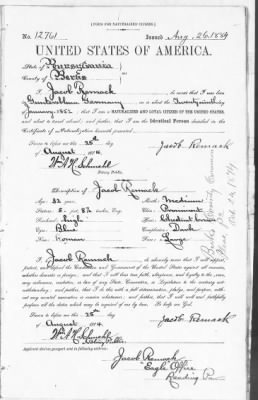 [FORM FOR NATURALIZED CITIZEN.]
No. 12761 Issued Aug. 26, 1884
UNITED STATES OF AMERICA.
State of Pennsylvania
County of Berks
I Jacob Remack do swear that I was born
Germany on or about the
January 1852 that I am a NATURALIZED AND LOYAL CITIZEN OF THE UNITED STATES,
and about to travel abroad; and further, that I am the Identical Person described in the
Certificate of Naturalization herewith presented.
Sworn to before me this 25th day Jacob Remack
of August 1884
Notary Public.
Description of Jacob Remack
Age: 32 years
Stature: 5 feet inches, Eng.
Eyes: Blue
Nose: Roman
Mouth: Medium
Chin: Prominent
Hair:
Complexion: Dark
Face: Large
I, Jacob Remack do solemnly swear that I will support,
protect, and defend the Constitution and Government of the United States against all enemies,
whether domestic or foreign; and that I will bear true faith, allegiance, and loyalty to the same,
any ordinance, resolution, or law of any State, Convention, or Legislature to the contrary not-
withstanding; and further, that I do this with a full determination, pledge, and purpose, with-
out any mental reservation or evasion whatsoever; and further, that I will well and faithfully
perform all the duties which may be required of me by law. So help me God.
Sworn to before me this 25th day Jacob Remack
of August 1884
Applicant desires passport sent to following address:
Jacob Remack
Eagle Office
Reading Pa